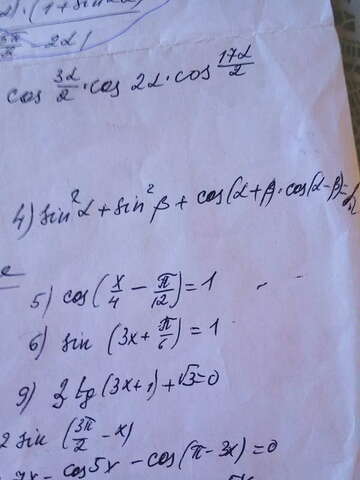 2)·(1+sin2α)
2α)
cos 3α/2 · cos 2α · cos 17α/2
4) sin²α + sin²β + cos(α+β)·cos(α-β)=
5) cos(x/4 - π/12)=1
6) sin (3x + π/6) = 1
9) tg(3x+1)+√3=0
2 sin (3π/2 - x)
cos5x - cos(π-3x)=0